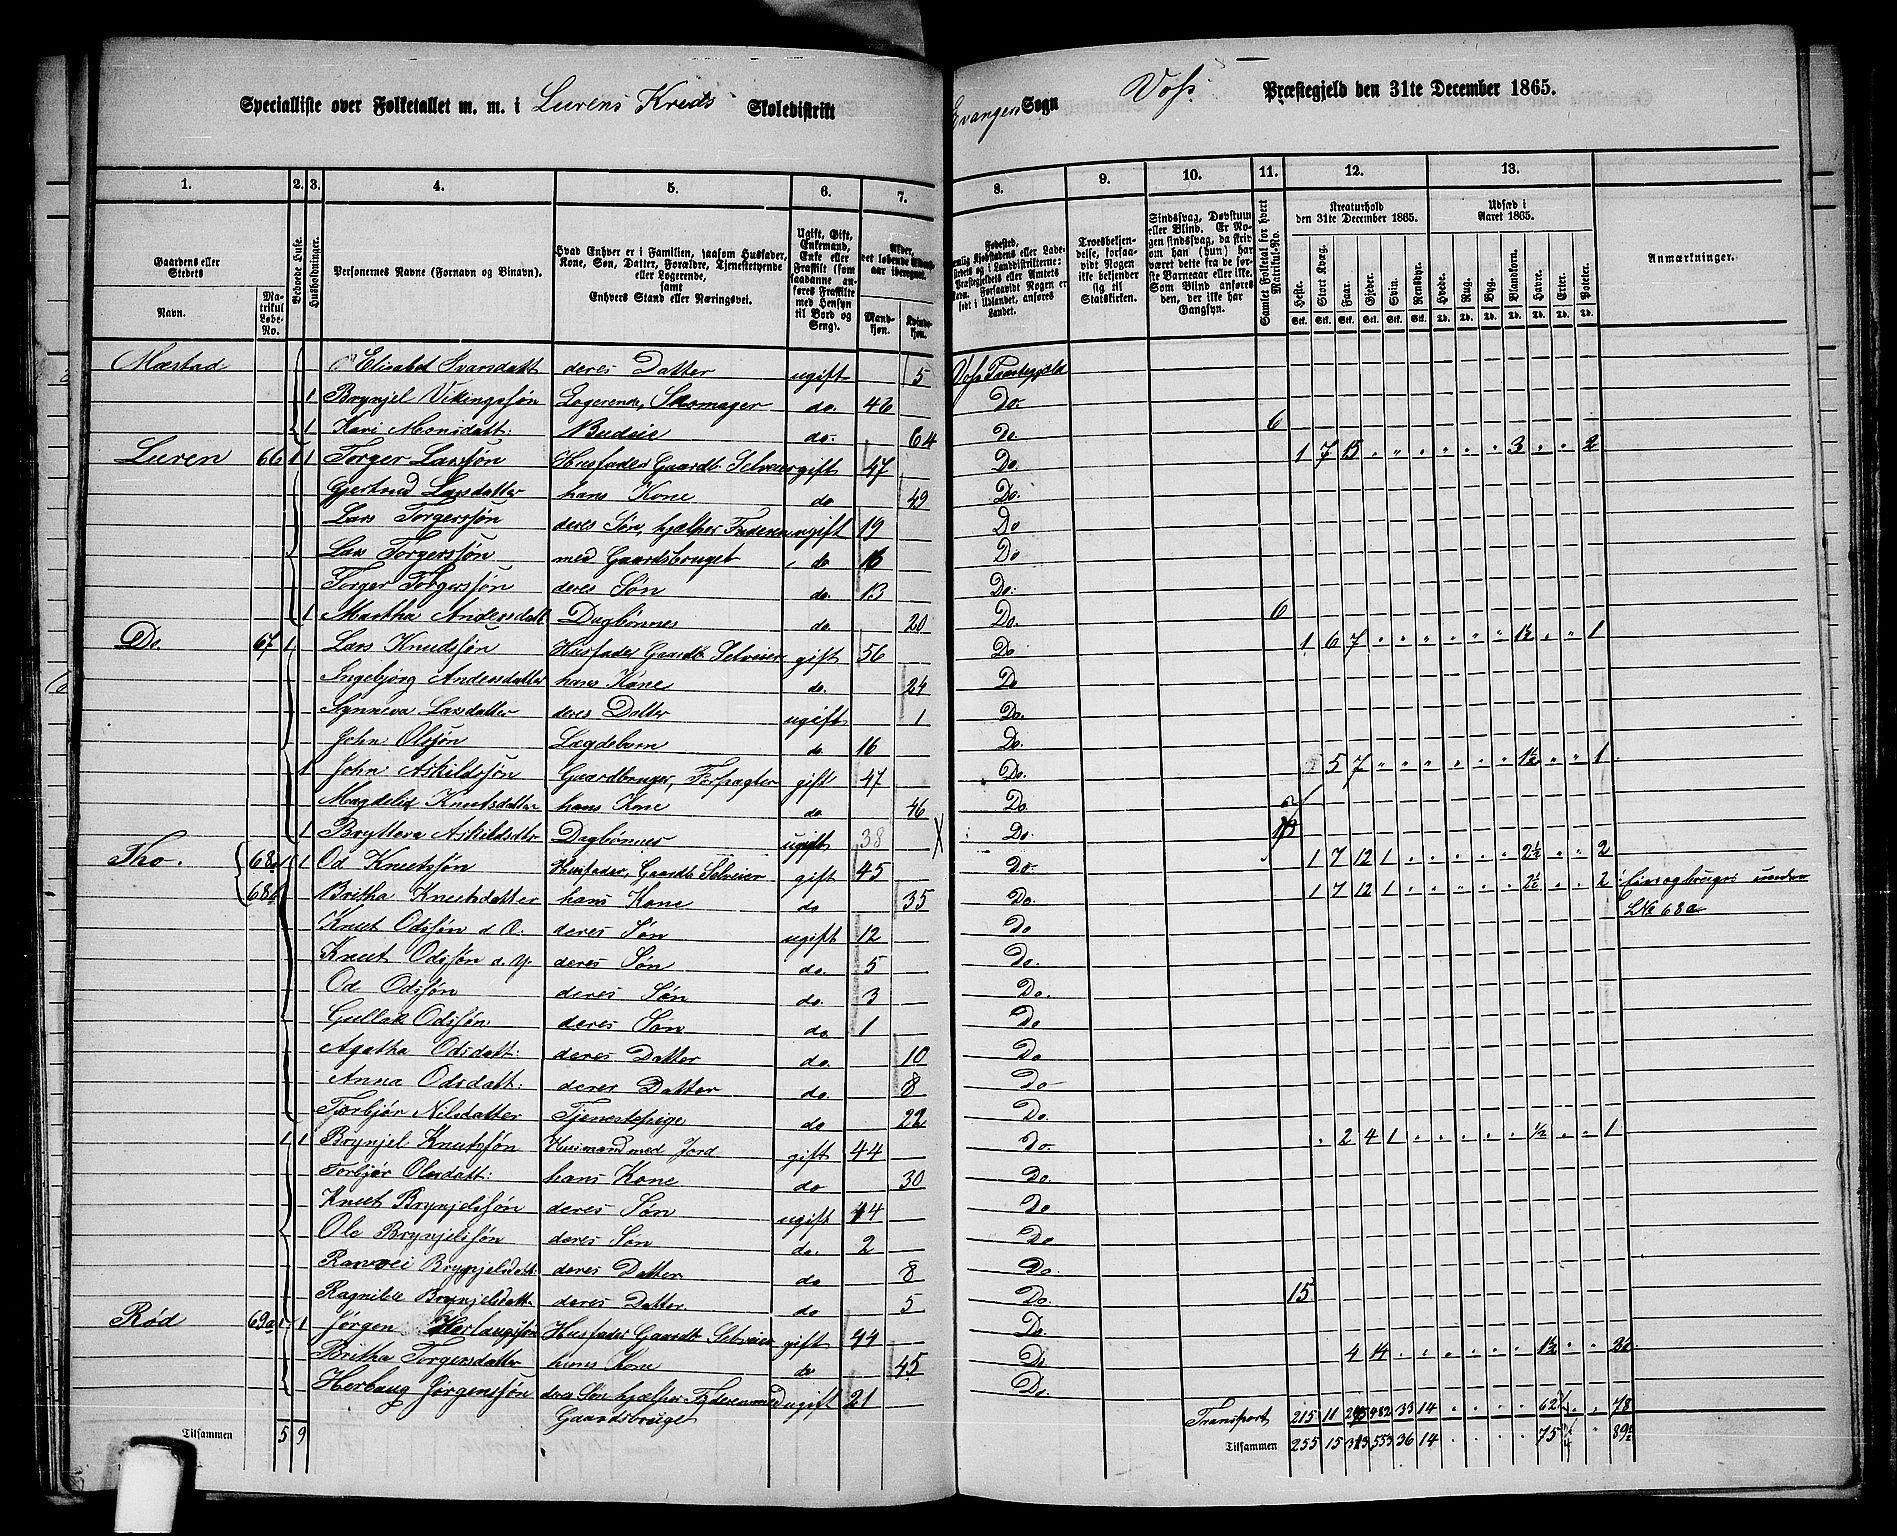 Specialliste over Folketallet m. m. i Lurens Kreds Skoledistrikt Evangers Sogn Voss Præstegjeld den 31te December 1865.
1. 2. 3. 4. 5. 6. 7. 8. 9. 10. 11. 12. 13.
Gaardens eller Stedets
Navn.
Matrikul Løbe-No.
Beboede Huse.
Husholdninger.
Personernes Navne (Fornavn og Binavn).
Hvad Enhver er i Familien, saasom Husfader, Kone, Søn, Datter, Forældre, Tjenestetyende eller Logerende, samt Enhvers Stand eller Næringsvei.
Ugift, Gift, Enkemand, Enke eller Fraskilt (som saadanne anføres Fraskilte med Hensyn til Bord og Seng).
Mandkjøn.
Kvindekjøn.
Troesbekjendelse, forsaavidt Nogen ikke bekjender sig til Statskirken.
Sindssvag, Døvstum eller Blind.
Samlet Folketal for hvert Matrikul-No.
Kreaturhold den 31te December 1865.
Udsæd i Aaret 1865.
Heste. Stort Kvæg. Faar. Gjeder. Svin. Rensdyr. Hvede. Rug. Byg. Blandkorn. Havre. Erter. Poteter.
Anmærkninger.
Mæstad Elisabet Ivarsdatt deres Datter ugift 5 Voss Præstegjeld
1 Brynjel Vikingssøn Logerende, Skomager do. 46 Do.
1 Kari Monsdatt: Budeie do. 64 Do. 6
Luren 66 1 1 Torger Larssøn Husfader Gaardb. Selveier gift 47 Do. 1 7 13 3 2
Gjertrud Larsdatter hans Kone do 49 Do.
Lars Torgerssøn deres Søn, hjælper Faderen ugift 19 Do
Lars Torgerssøn med Gaardsbruget do 16 Do
Torger Torgerssøn deres Søn do. 13 Do.
1 Martha Andersdatt. Dagbønnes do. 20 Do. 6
Do. 67 1 Lars Knudssøn Husfader Gaardb. Selveier gift 56 Do 1 6 7 1½ 1
Ingebjørg Andersdatter hans Kone do. 24 Do
Synneva Larsdatter deres Datter ugift 1 Do.
John Olssøn Lægdebarn do 16 Do.
1 John Askildssøn Gaardbruger, Forpagter gift 47 Do. 5 7 1½ 1
Magdeli Knutsdatter hans Kone do 46 Do
1 Brytteva Askildsdtr Dagbønnes ugift 38 Do.
Tho. 68a 1 1 Od Knutssøn Husfader, Gaardb. Selveier gift 45 Do. 1 7 12 1 2½ 2
68b Britha Knutsdatter hans Kone do 35 Do. 1 7 12 1 2½ 2 under
LNo 68a
Knut Odssøn d. Æ. deres Søn ugift 12 Do
Knut Odssøn d. y. deres Søn do. 5 Do.
Od Odssøn deres Søn do. 3 Do.
Gullak Odssøn deres Søn do 1 Do
Agatha Odsdatt: deres Datter do. 10 Do
Anna Odsdatt: deres Datter do. 8 Do
Torbjør Nilsdatter Tjenestepige do 22 Do.
1 1 Brynjel Knutssøn Husmand med Jord gift 44 Do. 2 4 1 ½ 1
Torbjør Olesdatt: hans Kone do 30 Do.
Knut Brynjelssøn deres Søn ugift 14 Do
Ole Brynjelssøn deres Søn do. 2 Do.
Ranvei Brynjelsdatt: deres Datter do 8 Do.
Ragnilde Brynjelsdatt. deres Datter. do 5 Do. 15
Rød 69a 1 1 Jørgen Herlaugssøn Husfader Gaardb Selveier gift 44 Do. 4 14 1½
Britha Torgersdatter hans Kone do 45 Do
Herlaug Jørgenssøn deres Søn hjælper Faderen med ugift 21 Do.
Gaardsbruget
Transport 215 11 482 33 14 78
Tilsammen 5 9 Tilsammen 255 15 313 553 36 14 75